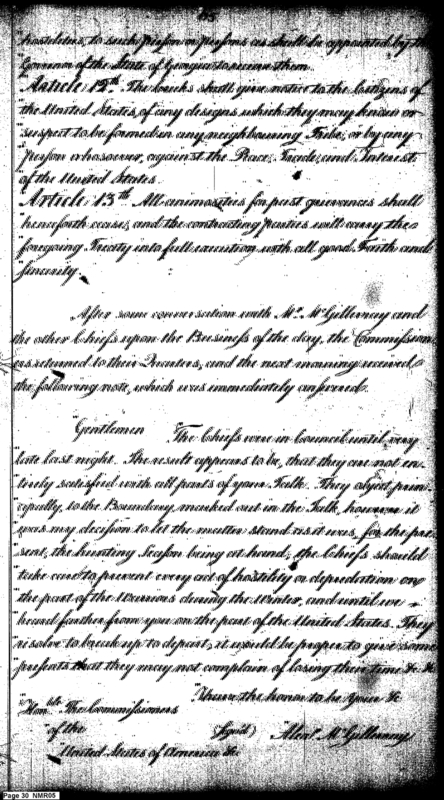 65
hostilities, to such person or persons as shall be appointed by the
Governor of the State of Georgia to receive them.
"Article 12th The Creeks shall give notice to the Citizens of
"the United States, of any designs which they may know or
"suspect to be formed in any neighbouring Tribe, or by any
"person whosoever, against the Peace, Trade, and Interest
"of the United States.
"Article 13th All animosities for past grievances shall
"henceforth cease, and the contracting parties will carry the
"foregoing Treaty into full execution with all good Faith and
"Sincerity.
After some conversation with Mr. McGillivray and
the other Chiefs upon the Business of the day, the Commission-
ers returned to their Quarters, and the next morning received
the following note, which was immediately answered.
"Gentlemen "The Chiefs were in Council until very
"late last night. The result appears to be, that they are not en-
"tirely satisfied with all parts of your Talk. They object prin-
"cipally, to the Boundary marked out in the Talk, however it
"was my decision to let the matter stand as it was, for the pre-
"sent, the hunting Season being at hand; the Chiefs should
"take care to prevent every act of hostility or depredation on
"the part of the Warriors during the Winter, and until we
"heard further from you on the part of the United States. They
"resolve to break up to depart, it would be proper to give some
"presents that they may not complain of losing their time &c &c
"I have the honor to be your &c
"Honble The Commissioners
"of the (Signed) Alexr McGillivray
"United States of America &c
Page 30 NMR05